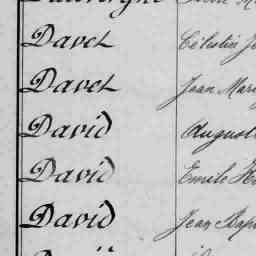 Davet Célestin
Davet Jean Mari
David August
David Emile
David Jean Bap